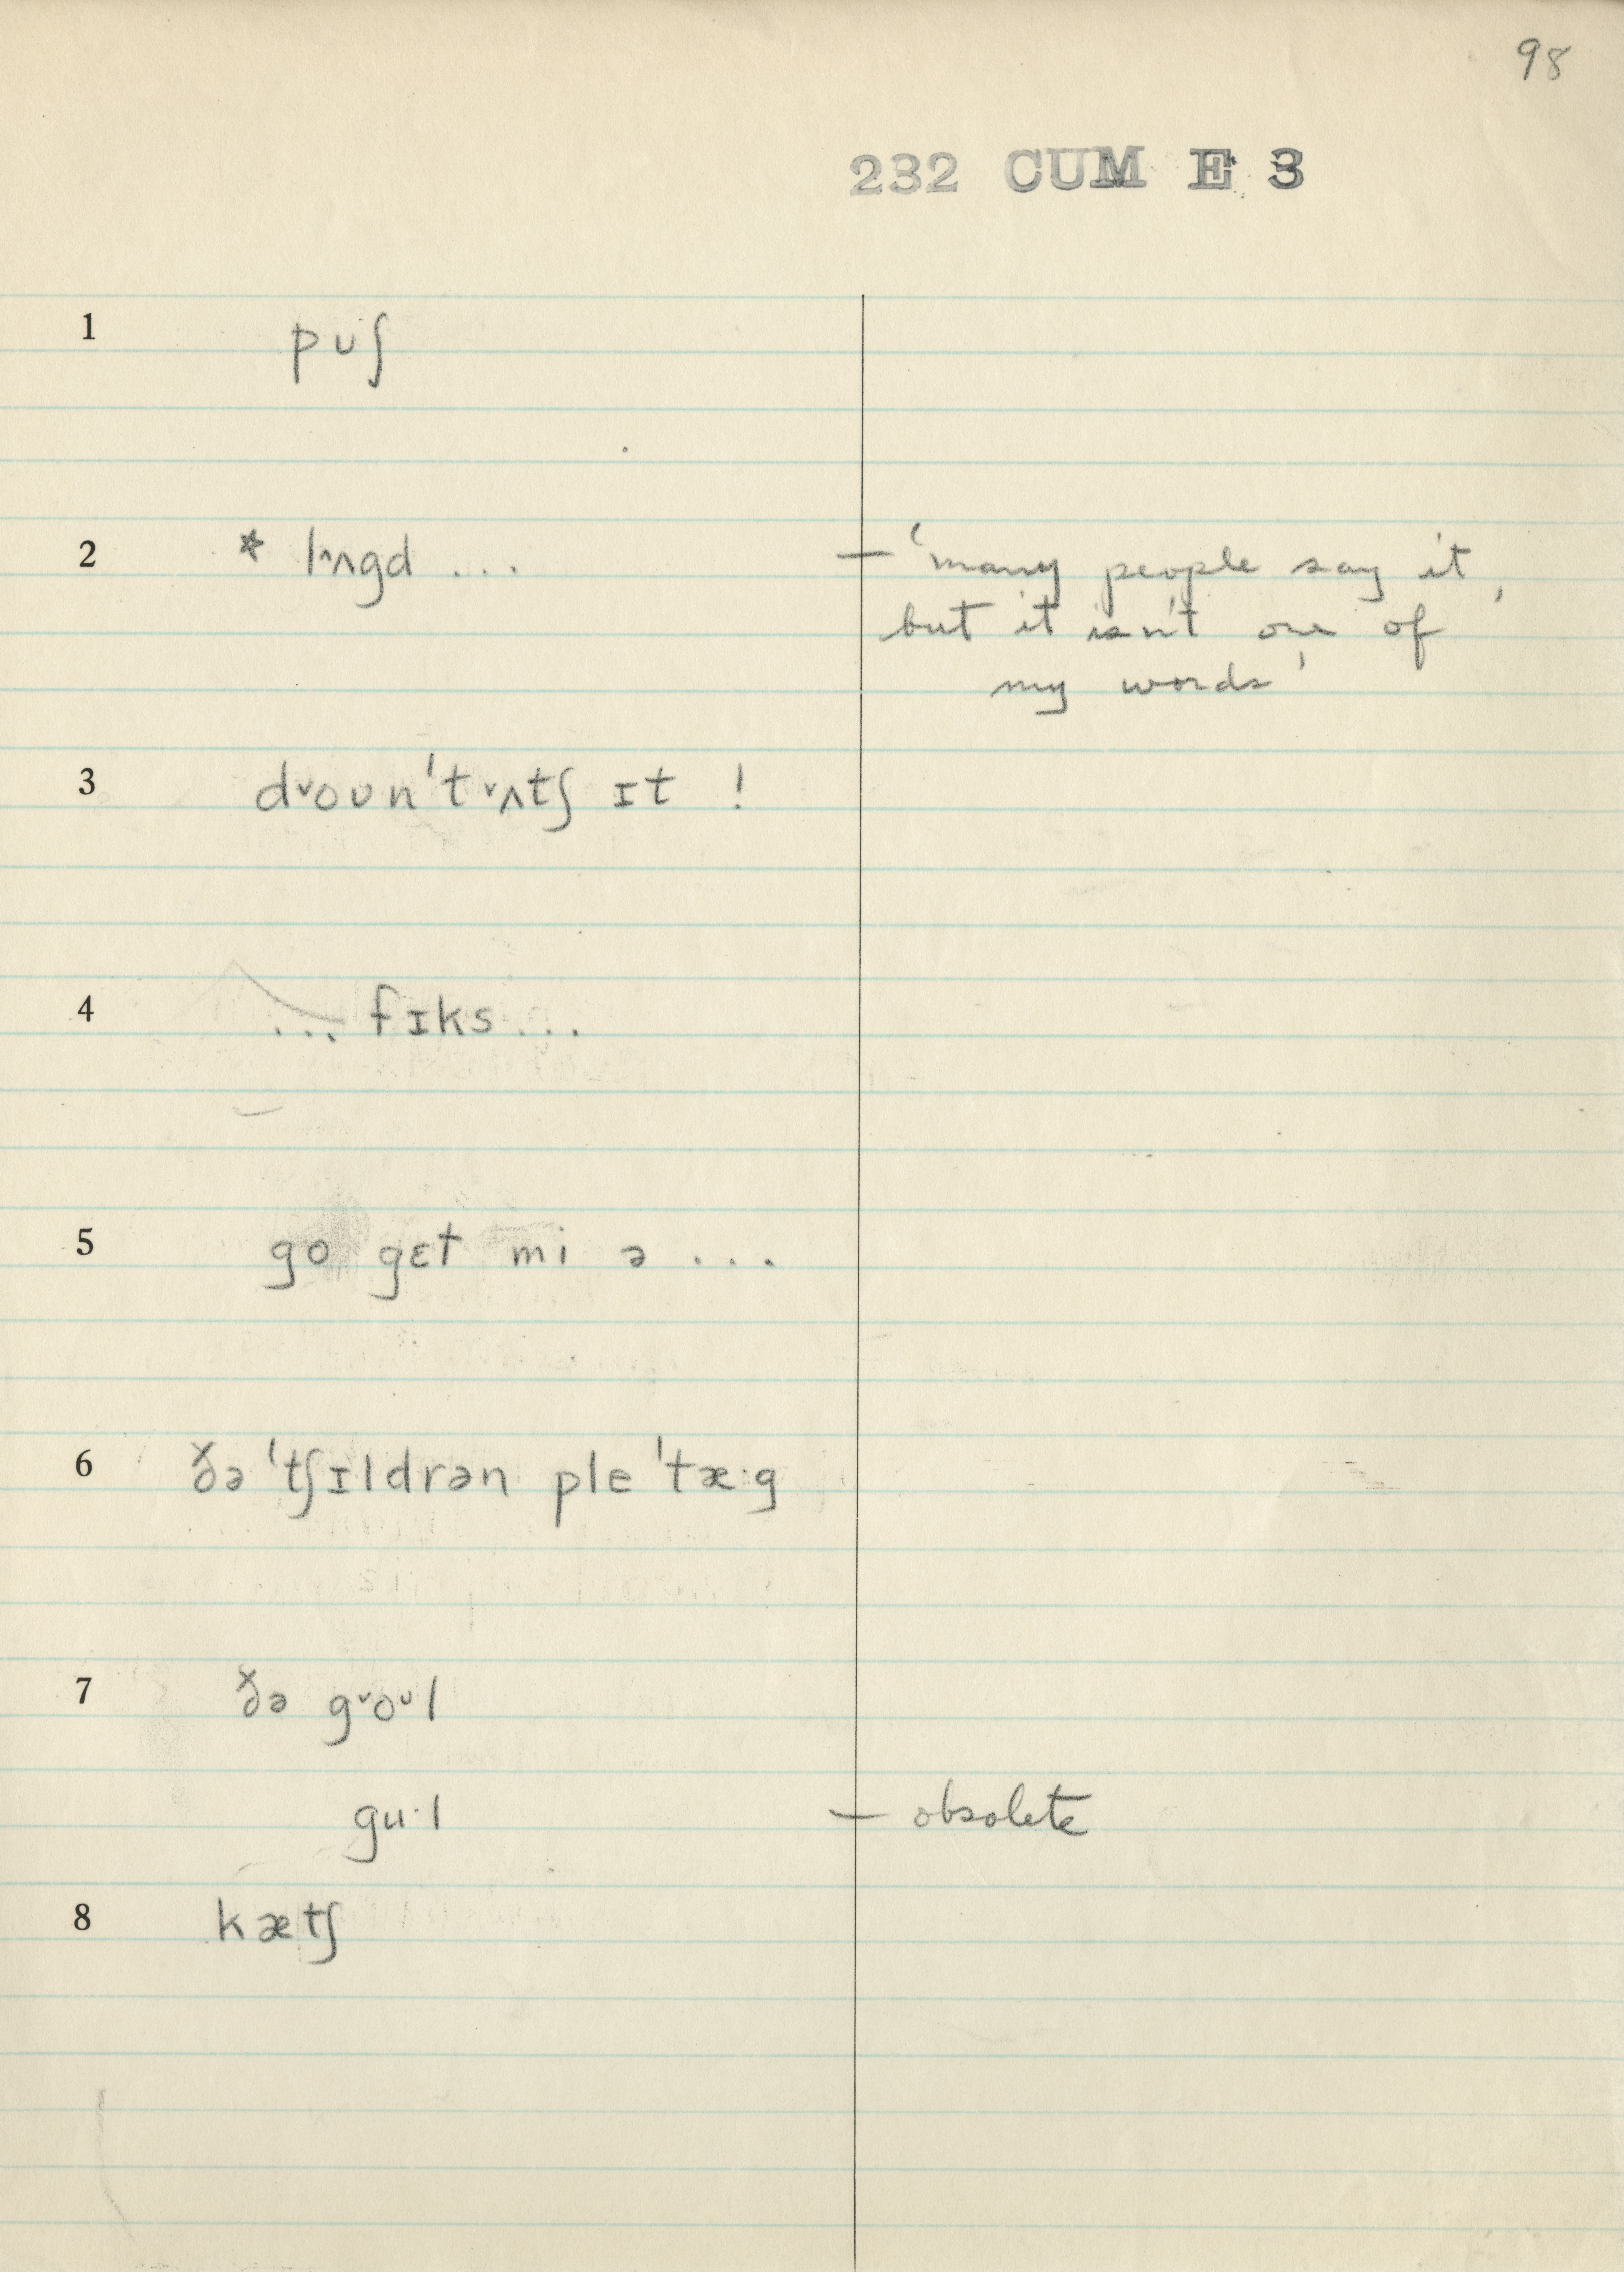 98
232 CUM E 3
1 pʊʃ
2 * lʌgd ... — 'many people say it,
but it isn't one of
my words'
3 d˅oʊn't˅ʌtʃ ɪt !
4 ... fɪks ...
5 go gɛt mi ə ...
6 ðə 'tʃɪldrən ple 'tæ·g
7 ðə g˅oᴜl
gu·l — obsolete
8 kætʃ